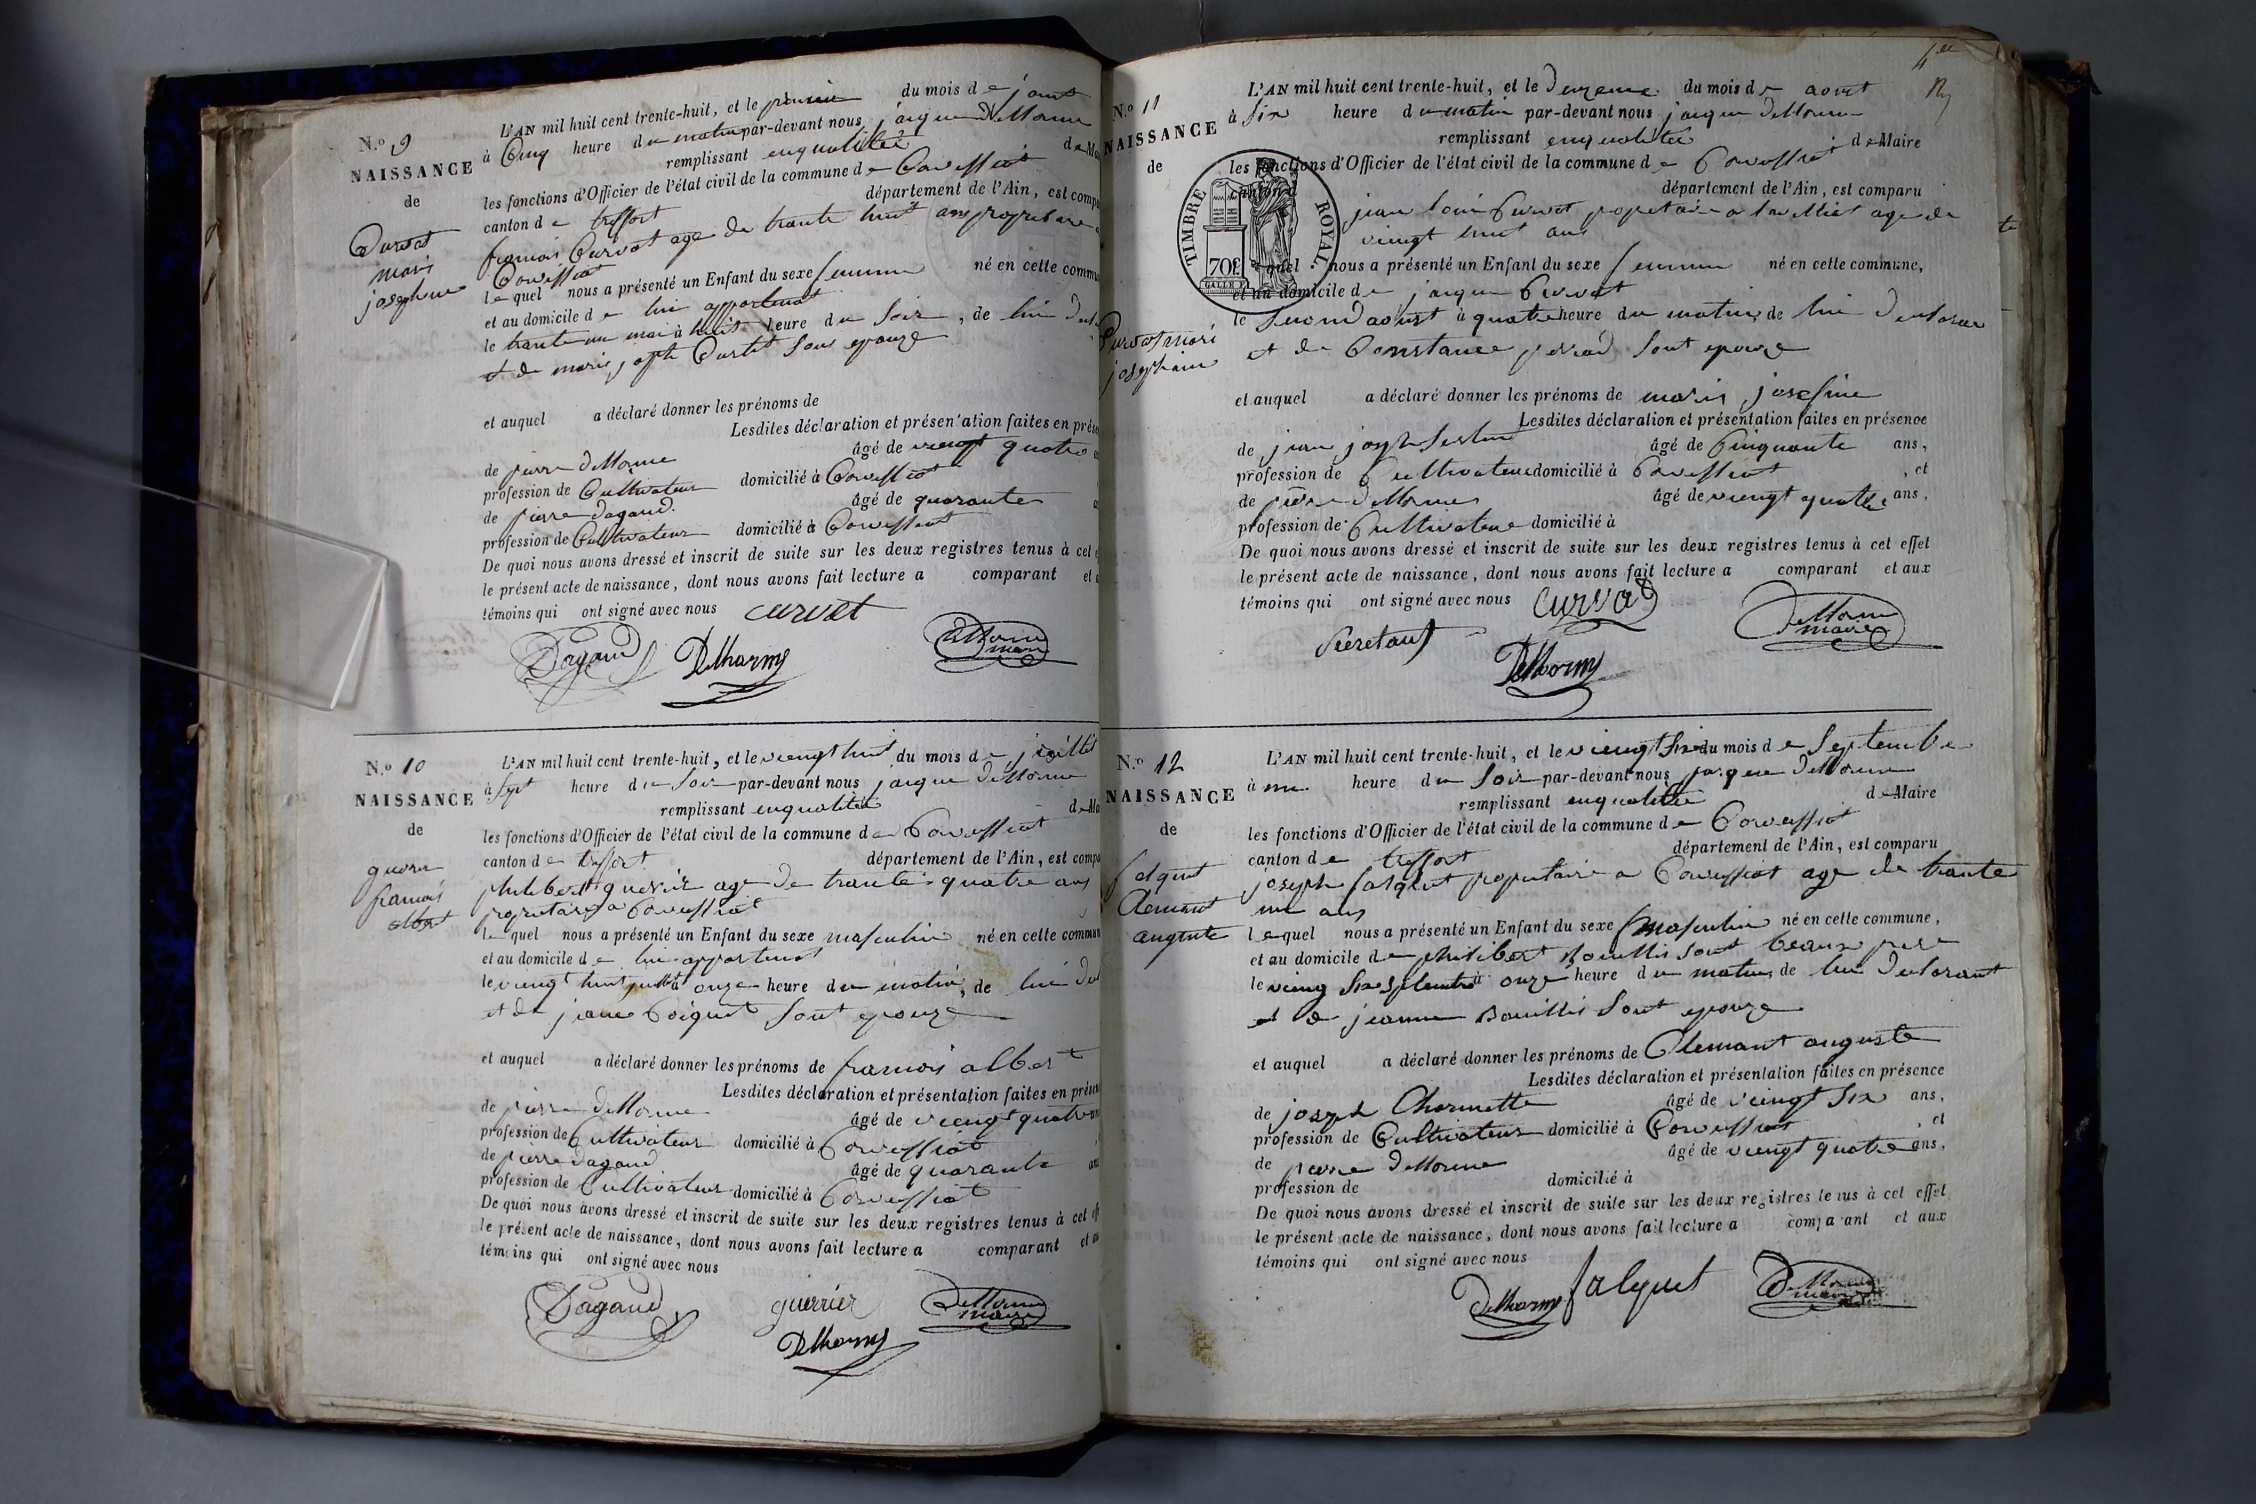 N.o 9
NAISSANCE
de
Curvat
marie
josephine
L'AN mil huit cent trente-huit, et le premier du mois de
à Cinq heure du matin par-devant nous jaique Delhorme
remplissant enqualitée de Ma
les fonctions d'Officier de l'état civil de la commune de Corveissiat
canton de treffort département de l'Ain, est compa
francois Curvat age de trante huit ans proprietaire
Corveissiat
le quel nous a présenté un Enfant du sexe femmin né en cette commu
et au domicile de lui appartenat
le trante un mai à huit heure du soir, de lui
et de marie joseph sou epouze
et auquel a déclaré donner les prénoms de
Lesdites déclaration et présentation faites en prése
de pierre delhorme âgé de viengt quatre
profession de Cultivateur domicilié à Corveissiat
de pierre dagaud. âgé de quarante
profession de Cultivateur domicilié à Corveissiat
De quoi nous avons dressé et inscrit de suite sur les deux registres tenus à cet
le présent acte de naissance, dont nous avons fait lecture a comparant et
témoins qui ont signé avec nous curvat
Dagaud Delhorme Delhorme
maire
N.o 10
NAISSANCE
de
francois
albert
L'AN mil huit cent trente-huit, et le viengt huit du mois de juillet
à sept heure du soir par-devant nous jaique Delhorme
remplissant enqualitée de Ma
les fonctions d'Officier de l'état civil de la commune de Corveissiat
canton de treffort département de l'Ain, est compa
philibert guerier age de trante quatre ans
proprietaire a Corveissiat
le quel nous a présenté un Enfant du sexe masculin né en cette commun
et au domicile de lui appartenat
le viengt huit juillet à onze heure du matin, de lui
et de Goiguet sont epouze
et auquel a déclaré donner les prénoms de francois albert
Lesdites déclaration et présentation faites en prése
de pierre delhorme âgé de viengt quatre
profession de Cultivateur domicilié à Corveissiat
de pierre dagaud âgé de quarante
profession de Cultivateur domicilié à Corveissiat
De quoi nous avons dressé et inscrit de suite sur les deux registres tenus à cet
le présent acte de naissance, dont nous avons fait lecture a comparant et
témoins qui ont signé avec nous
Dagaud guerrier Delhorme
maire
Delhorme
N.o 11
NAISSANCE
de
Curvat marie
L'AN mil huit cent trente-huit, et le deuzeme du mois de aoust
à six heure du matin par-devant nous jaique Delhorme
remplissant enqualitée de Maire
les fonctions d'Officier de l'état civil de la commune de Corveissiat
canton d département de l'Ain, est comparu
TIMBRE ROYAL
70c
jean loui Curvat propetaire a age de
viengt huit ans
quel nous a présenté un Enfant du sexe femmin né en cette commune,
et au domicile de jaique Curvat
le segond aoust à quatre heure du matin, de lui declarant
et de Constance sont epouze
et auquel a déclaré donner les prénoms de marie josefine
Lesdites déclaration et présentation faites en présence
de jean joseph âgé de Cinquante ans,
profession de Cultivateur domicilié à Corveissiat, et
de pierre delhorme âgé de viengt quatre ans,
profession de Cultivateur domicilié à
De quoi nous avons dressé et inscrit de suite sur les deux registres tenus à cet effet
le présent acte de naissance, dont nous avons fait lecture a comparant et aux
témoins qui ont signé avec nous curvat
Secretant Delhorme
maire
Delhorme
N.o 12
NAISSANCE
de
falquet
Clemant
auguste
L'AN mil huit cent trente-huit, et le viengt six du mois de septembre
à une heure du soir par-devant nous jaique Delhorme
remplissant enqualitée de Maire
les fonctions d'Officier de l'état civil de la commune de Corveissiat
canton de treffort département de l'Ain, est comparu
joseph falquet propietaire a Corveissiat age de trante
un ans
le quel nous a présenté un Enfant du sexe masculin né en cette commune,
et au domicile de philibert Bouillis sont beaux pere
le vieng six septembre à onze heure du matin, de lui declarant
et de jeanne Bouillis sont epouze
et auquel a déclaré donner les prénoms de Clemant auguste
Lesdites déclaration et présentation faites en présence
de joseph Charmette âgé de viengt six ans,
profession de Cultivateur domicilié à Corveissiat, et
de pierre delhorme âgé de viengt quatre ans,
profession de domicilié à
De quoi nous avons dressé et inscrit de suite sur les deux registres tenus à cet effet
le présent acte de naissance, dont nous avons fait lecture a comparant et aux
témoins qui ont signé avec nous
Delhorme falquet Delhorme
maire